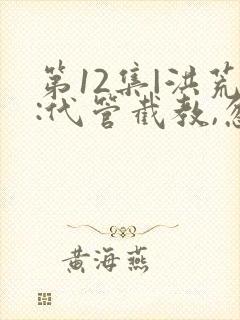 第12集|洪荒
:代管截教,忽
黄海燕